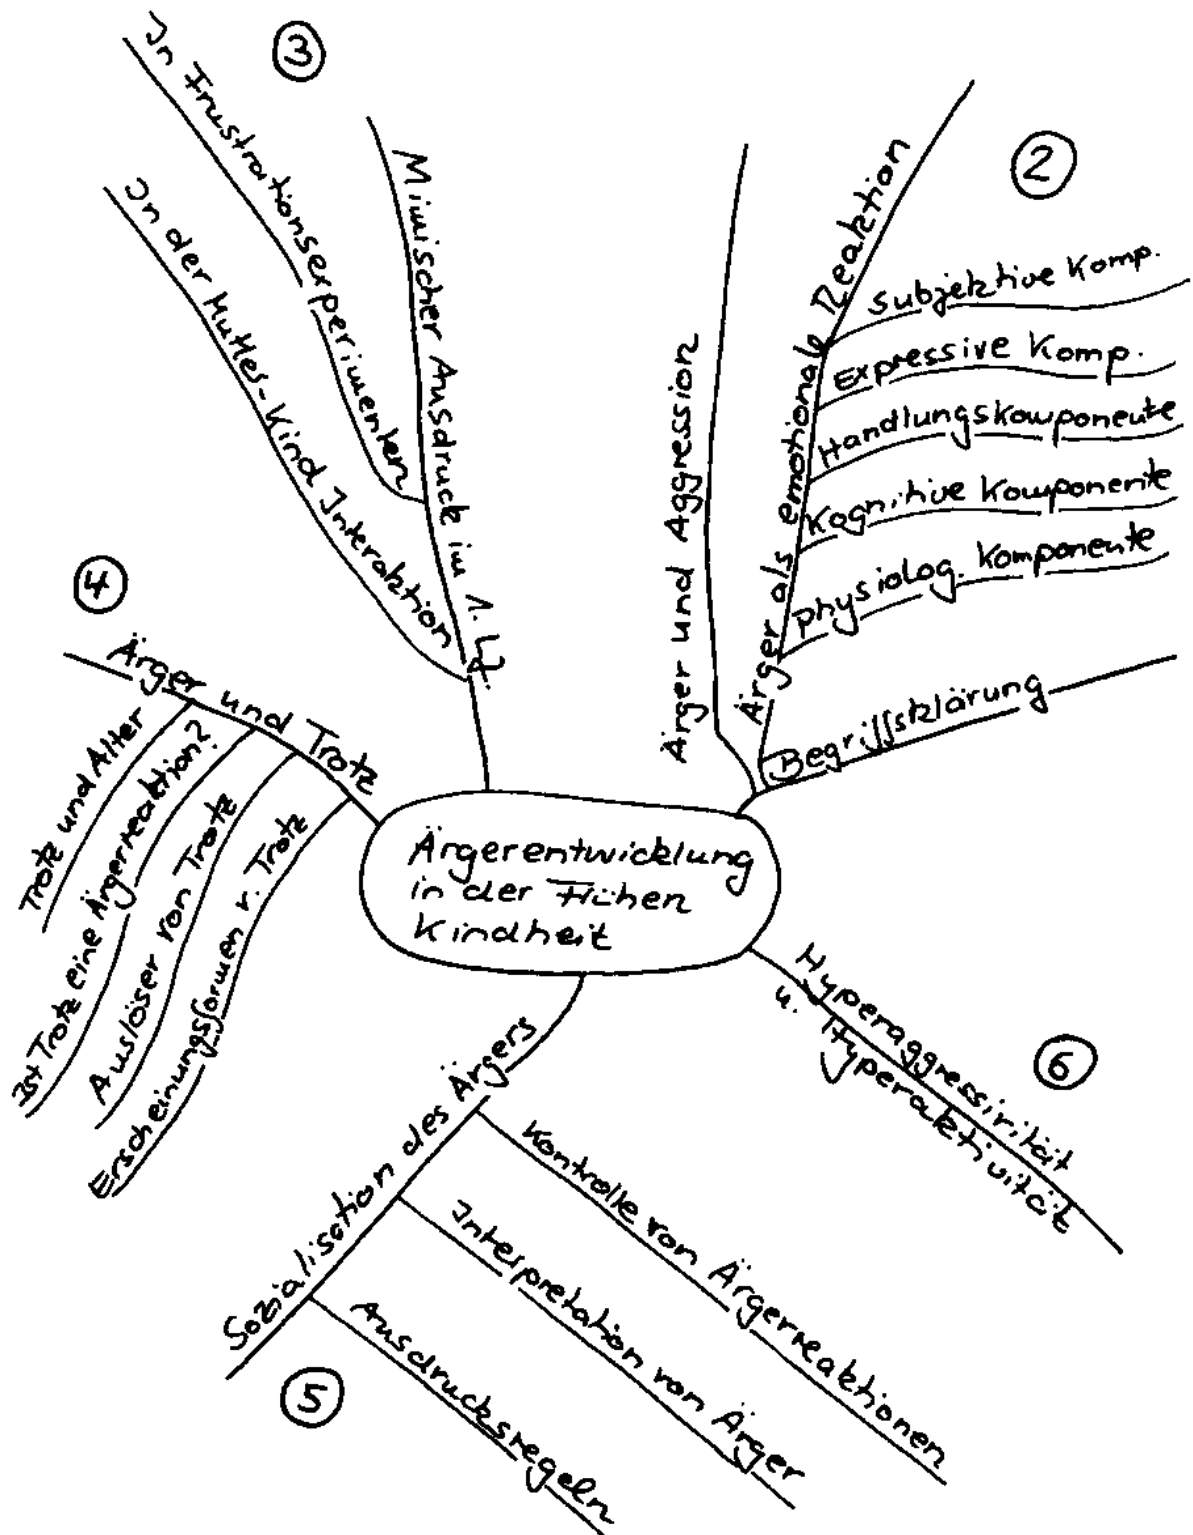 Ärgerentwicklung
in der Frühen
Kindheit
2
Ärger und Aggression
Ärger als emotionale Reaktion
Subjektive Komp.
Expressive Komp.
Handlungskomponente
Kognitive Komponente
Physiolog. Komponente
Begriffsklärung
3
Mimischer Ausdruck im 1. Lj.
In Frustrationsexperimenten
In der Mutter-Kind Interaktion
4
Ärger und Trotz
Trotz und Alter
Ist Trotz eine Ärgerreaktion?
Auslöser von Trotz
Erscheinungsformen v. Trotz
5
Sozialisation des Ärgers
Kontrolle von Ärgerreaktionen
Interpretation von Ärger
Ausdrucksregeln
6
Hyperaggressivität
u. Hyperaktivität